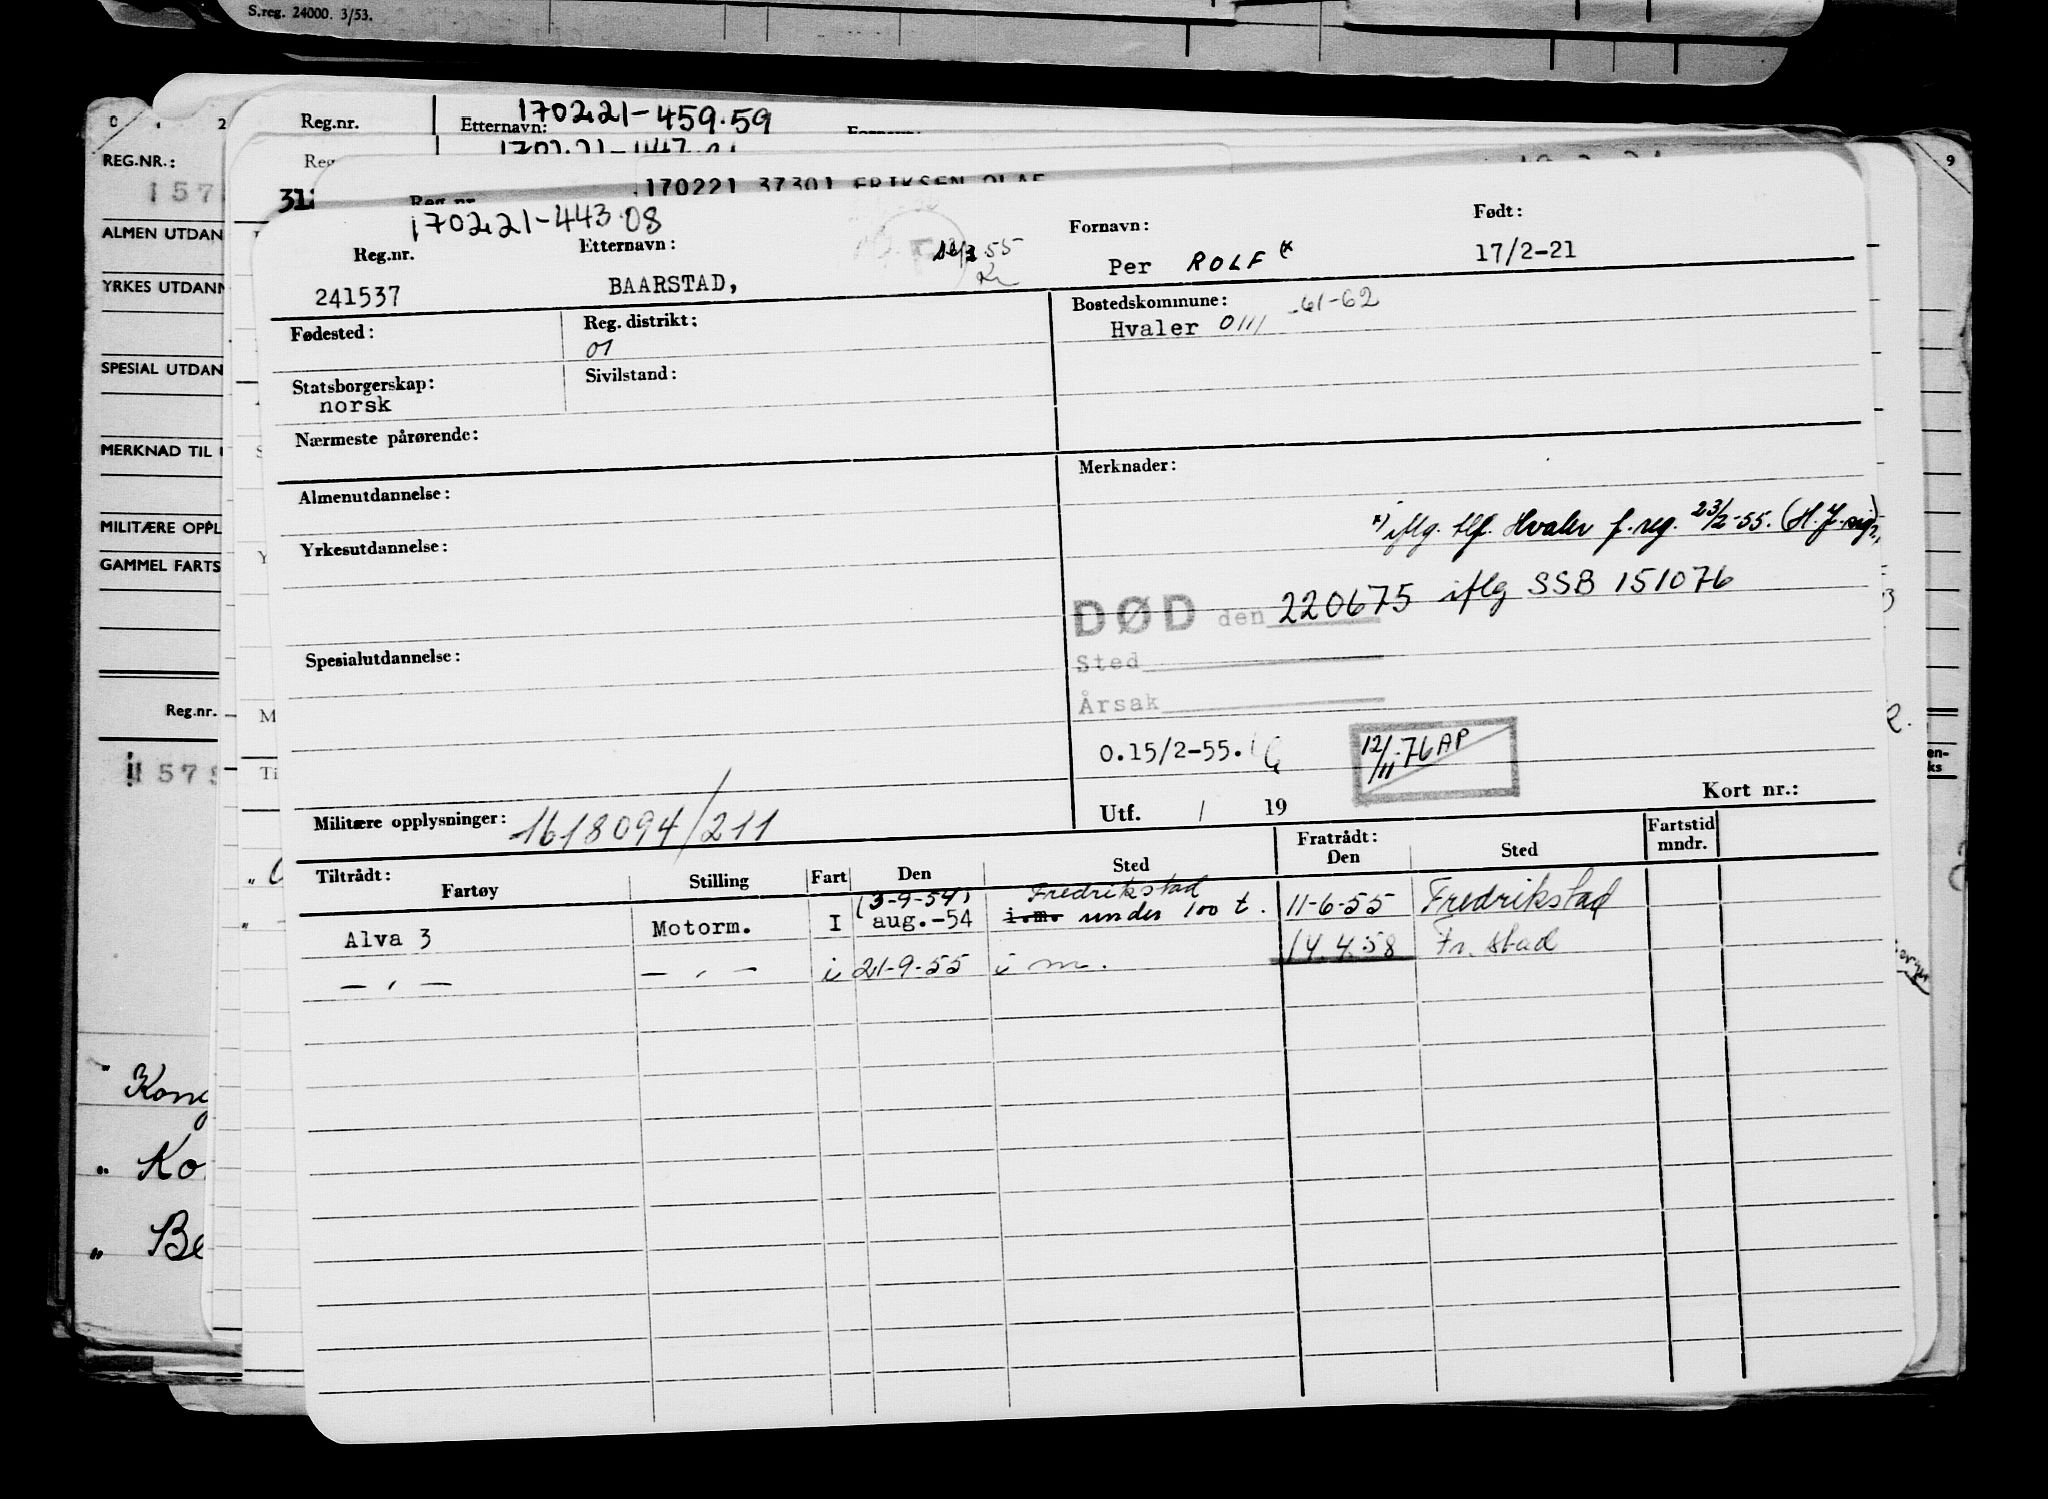 S.reg. 24000. 3/53.
170221-459.59
Reg.nr. Etternavn: Fornavn:
REG.NR.:
157
170221 37301 ERIKSEN OLAF
170221-443.08
Reg.nr. Etternavn: 55 Fornavn: Født:
241537 BAARSTAD, Per ROLF * 17/2-21
Fødested: Reg. distrikt: Bostedskommune:
01 Hvaler 0111 -61-62
Statsborgerskap: Sivilstand:
norsk
Nærmeste pårørende:
Almenutdannelse: Merknader:
*) iflg. tlf. Hvaler f. reg. 23/2-55. (H.J. sig)
Yrkesutdannelse:
DØD den 220675 iflg SSB 151076
Spesialutdannelse: Sted
Årsak
O.15/2-55. 12/11-76 AP
Militære opplysninger: 1618094/211 Utf. / 19 Kort nr.:
Tiltrådt: Fratrådt: Fartstid mndr.
Fartøy Stilling Fart Den Sted Den Sted
(3-9-54) Fredrikstad
Alva 3 Motorm. I aug.-54 i.m. under 100 t. 11-6-55 Fredrikstad
— " — — " — i 21-9-55 i m. 14.4.58 Fr.stad
ALMEN UTDAN
YRKES UTDANN
SPESIAL UTDAN
MERKNAD TIL
MILITÆRE OPPL
GAMMEL FARTS
Reg.nr.
1579
Kong
" Ko
" Be